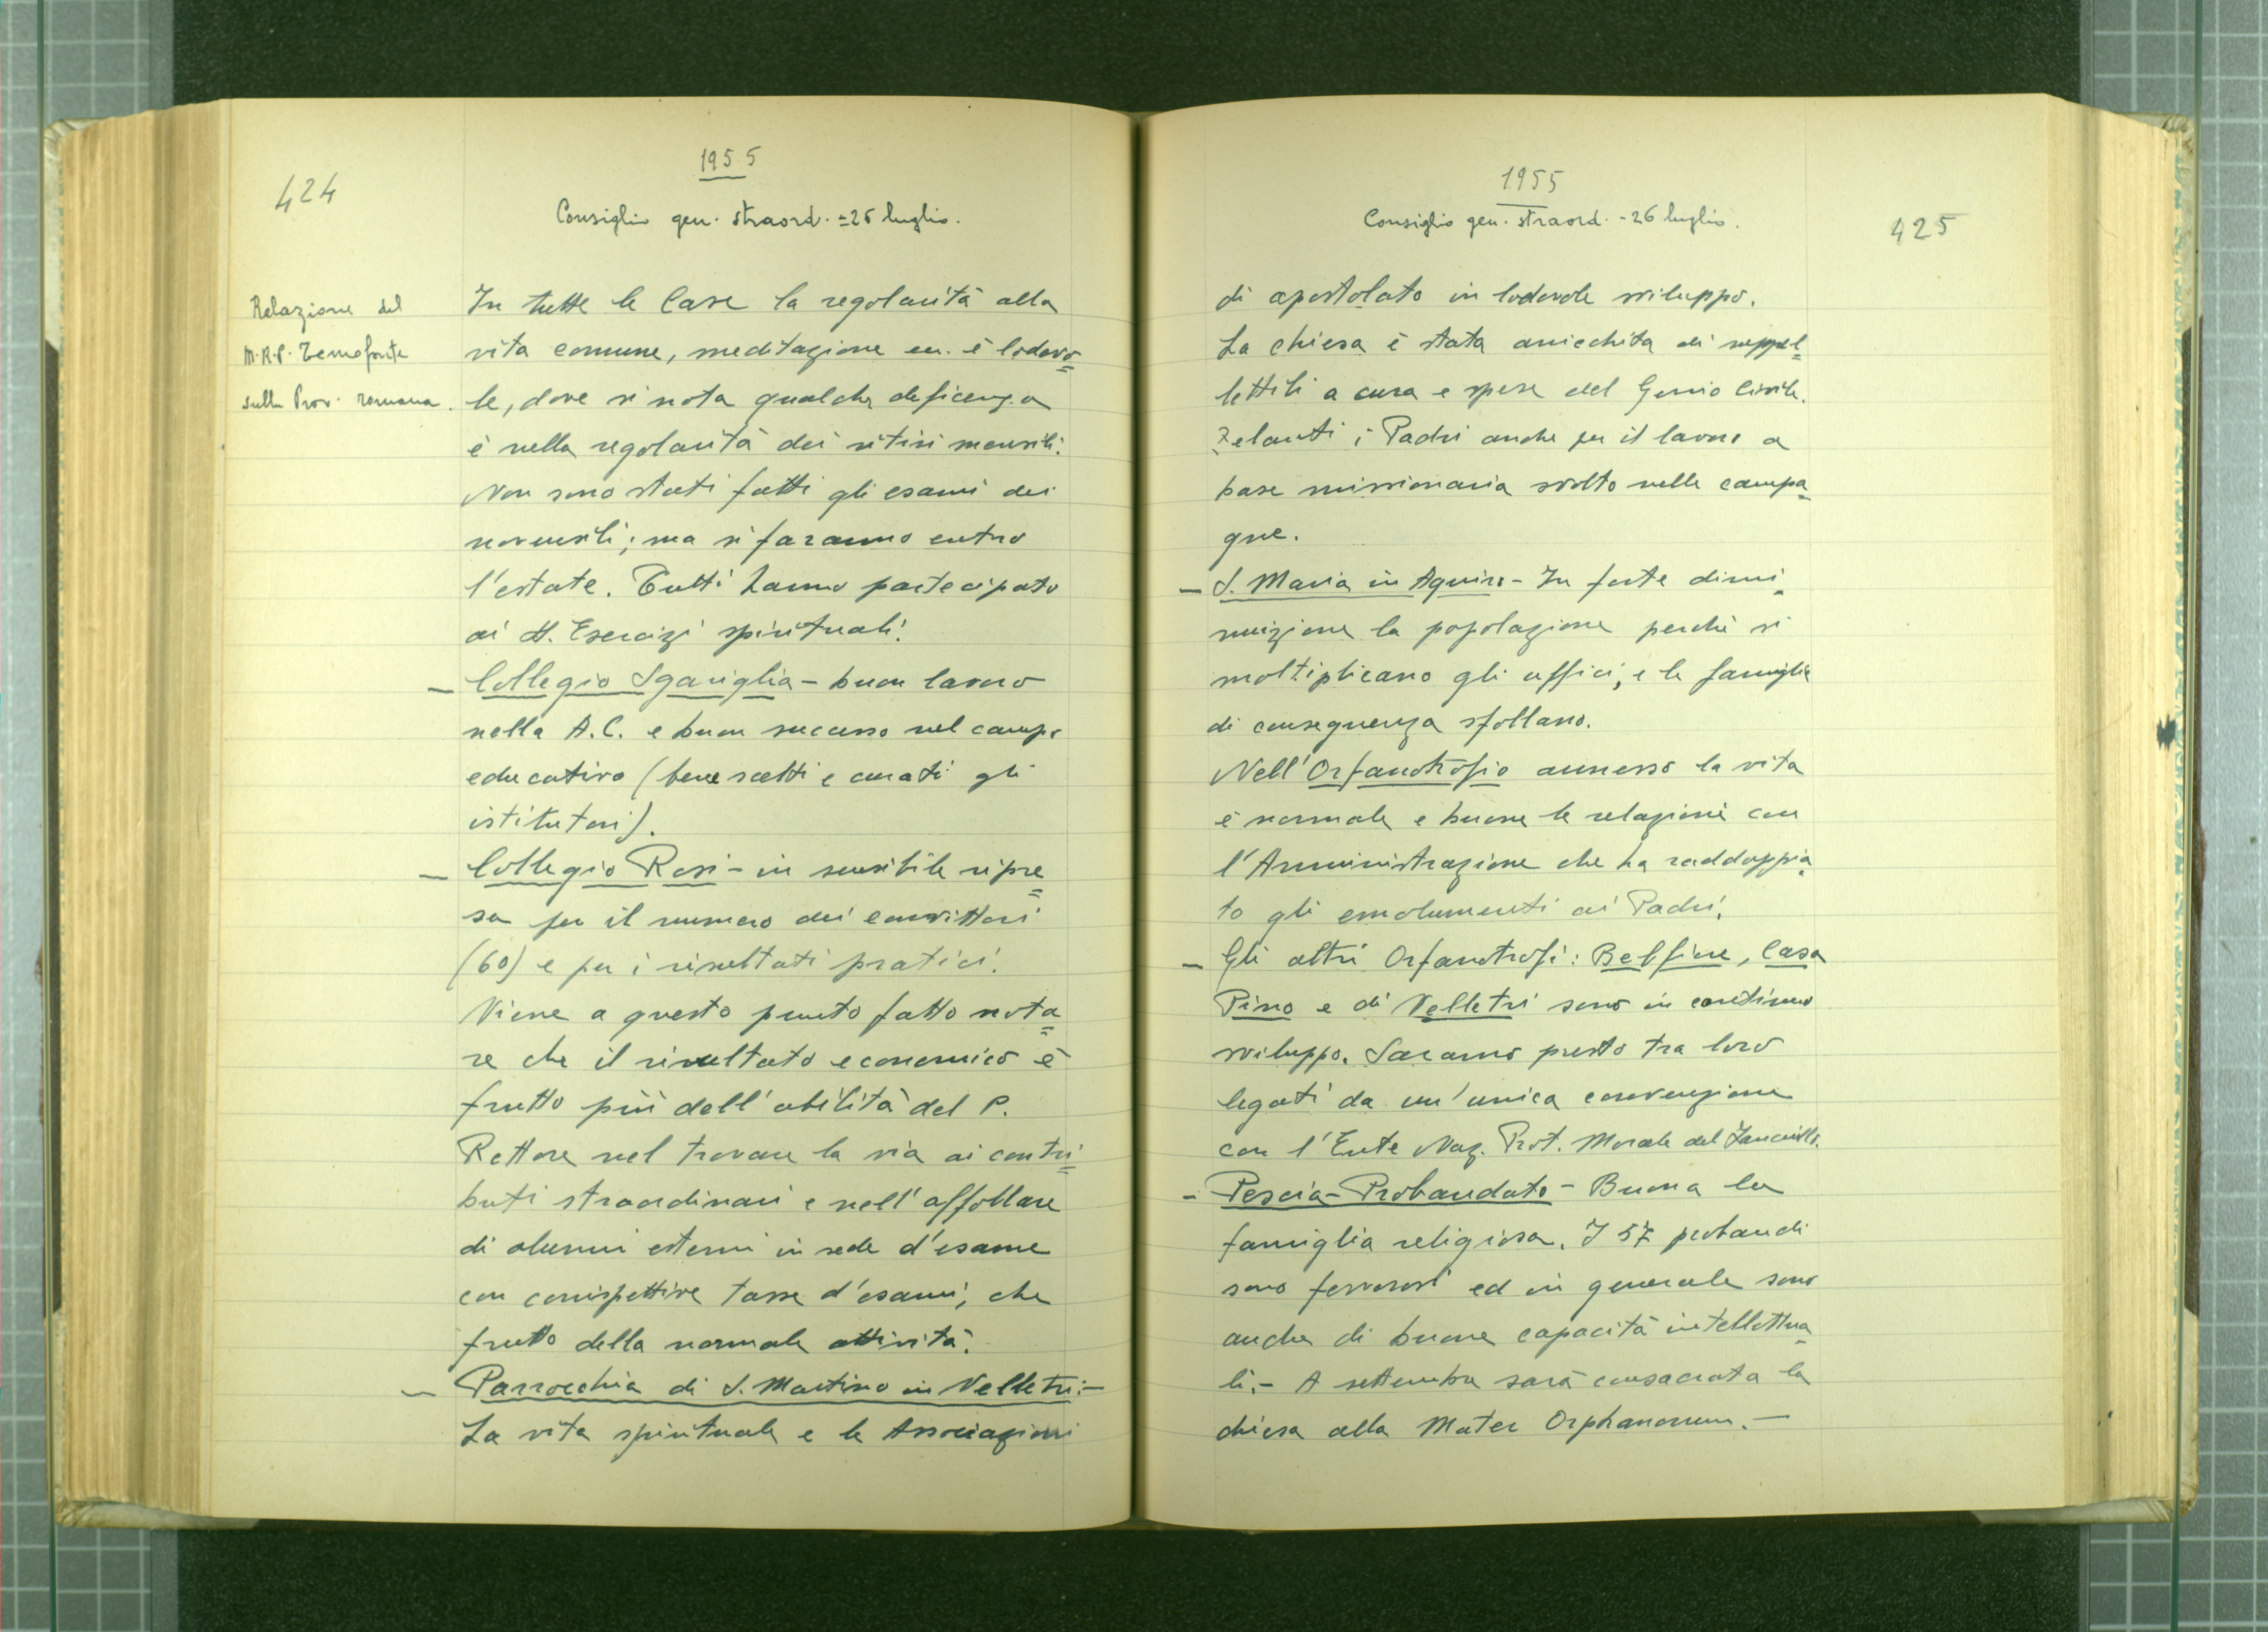 424
1955
Consiglio gen. straord. = 26 luglio.
Relazione del
M.R.P. Temofonte
sulla Prov. romana.
In tutte le Case la regolarità alla
vita comune, meditazione ecc. è lodevo=
le, dove si nota qualche deficenza
è nella regolarità dei ritiri mensili.
Non sono stati fatti gli esami dei
novensili; ma si faranno entro
l'estate. Tutti hanno partecipato
ai SS. Esercizi spirituali.
— Collegio Sgariglia - buon lavoro
nella A.C. e buon successo nel campo
educativo (bene scelti e curati gli
istitutori).
— Collegio Rosi - in sensibile ripre=
sa per il numero dei convittori
(60) e per i risultati pratici.
Viene a questo punto fatto nota=
re che il risultato economico è
frutto più dell'abilità del P.
Rettore nel trovare la via ai contri=
buti straordinari e nell'affollare
di alunni esterni in sede d'esame
con corrispettive tasse d'esami, che
frutto della normale attività.
— Parrocchia di S. Martino in Velletri: -
La vita spirituale e le Associazioni
1955
Consiglio gen. straord. - 26 luglio.
425
di apostolato in lodevole sviluppo.
La chiesa è stata arricchita di suppel=
lettili a cura e spese del Genio Civile.
Zelanti i Padri anche per il lavoro a
base missionaria svolto nelle campa=
gne.
— S. Maria in Aquiro - In forte dimi-
nuizione la popolazione perché si
moltiplicano gli uffici, e le famiglie
di conseguenza sfollano.
Nell'Orfanotrofio annesso la vita
è normale e buone le relazioni con
l'Amministrazione che ha raddoppia-
to gli emolumenti ai Padri.
— Gli altri Orfanotrofi: Belfiore, Casa
Pino e di Velletri sono in continuo
sviluppo. Saranno presto tra loro
legati da un'unica convenzione
con l'Ente Naz. Prot. Morale del Fanciullo.
- Pescia - Probandato - Buona la
famiglia religiosa. I 57 probandi
sono fervorosi ed in generale sono
anche di buone capacità intellettua-
li. - A settembre sarà consacrata la
chiesa alla Mater Orphanorum. -